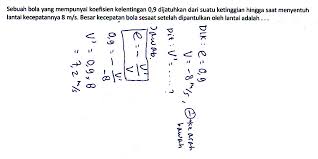 Sebuah bola yang mempunyai koefisien kelentingan 0,9 dijatuhkan dari suatu ketinggian hingga saat menyentuh
lantai kecepatannya 8 m/s. Besar kecepatan bola sesaat setelah dipantulkan oleh lantai adalah . . .
Dik : e = 0,9
V = -8 m/s, ⊖ ke arah
bawah
Dit : V' = .....?
Jawab
e = - V'/V
0,9 = - V'/-8
V' = 0,9 . 8
= 7,2 m/s